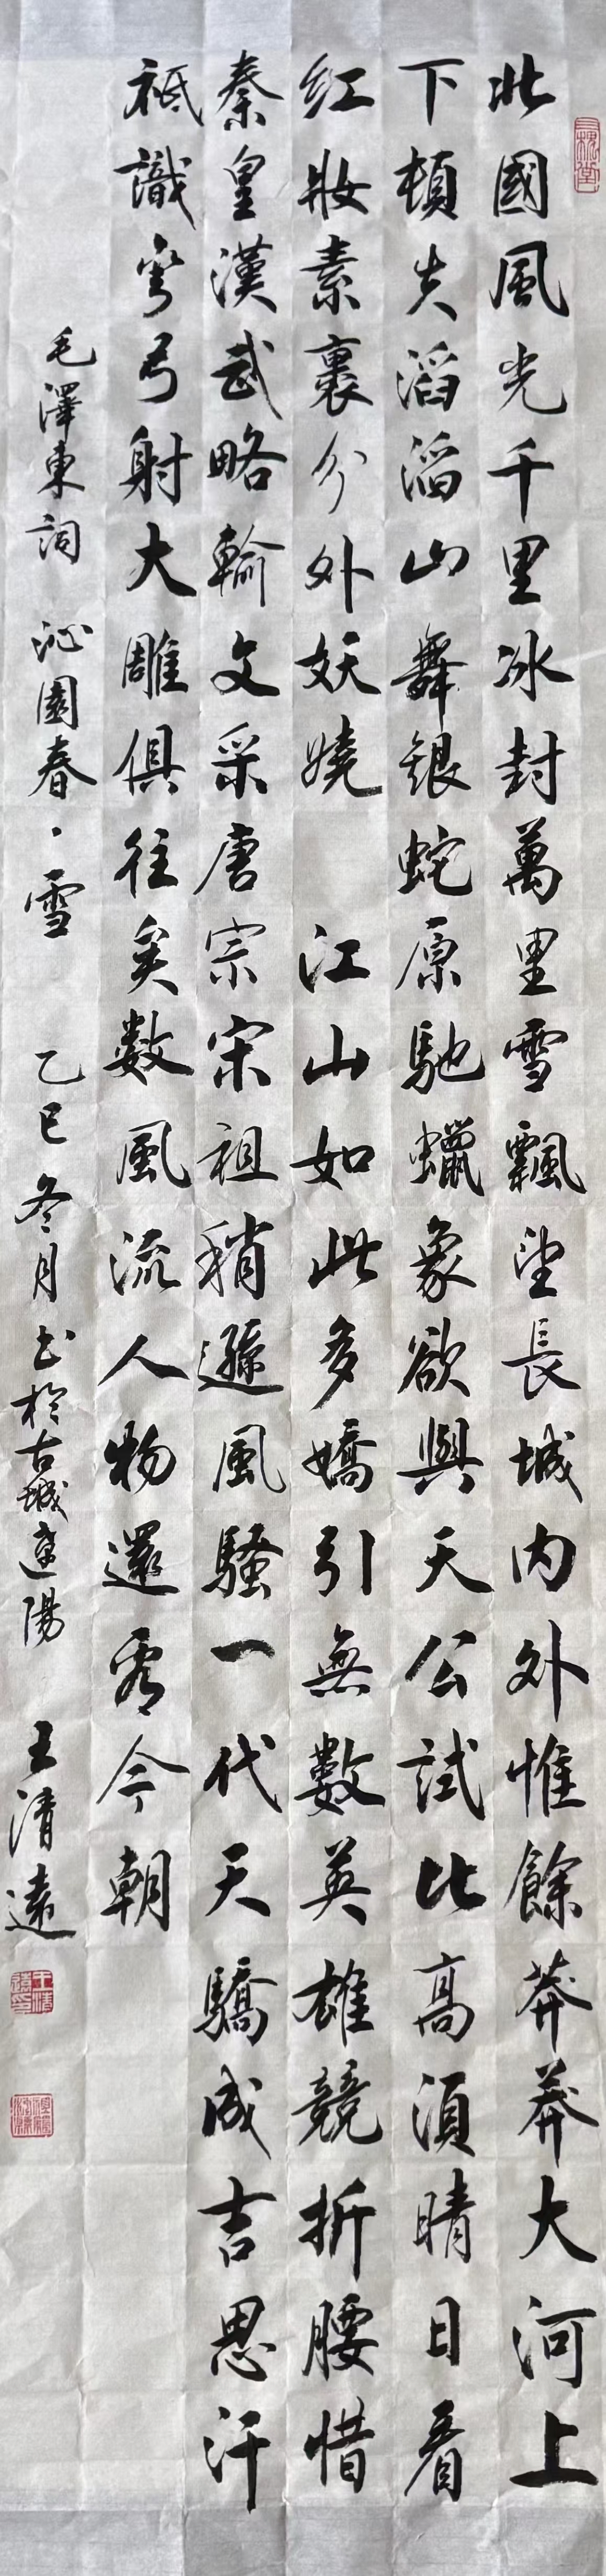 三槐堂
北國風光千里冰封萬里雪飄望長城内外惟餘莽莽大河上
下頓失滔滔山舞銀蛇原馳蠟象欲與天公試比高須晴日看
紅妝素裹分外妖嬈 江山如此多嬌引無數英雄競折腰惜
秦皇漢武略輸文采唐宗宋祖稍遜風騷一代天驕成吉思汗
祇識彎弓射大雕俱往矣數風流人物還看今朝
毛澤東詞 沁園春·雪 乙巳冬月书於古城遼陽 王清遠
王清遠印